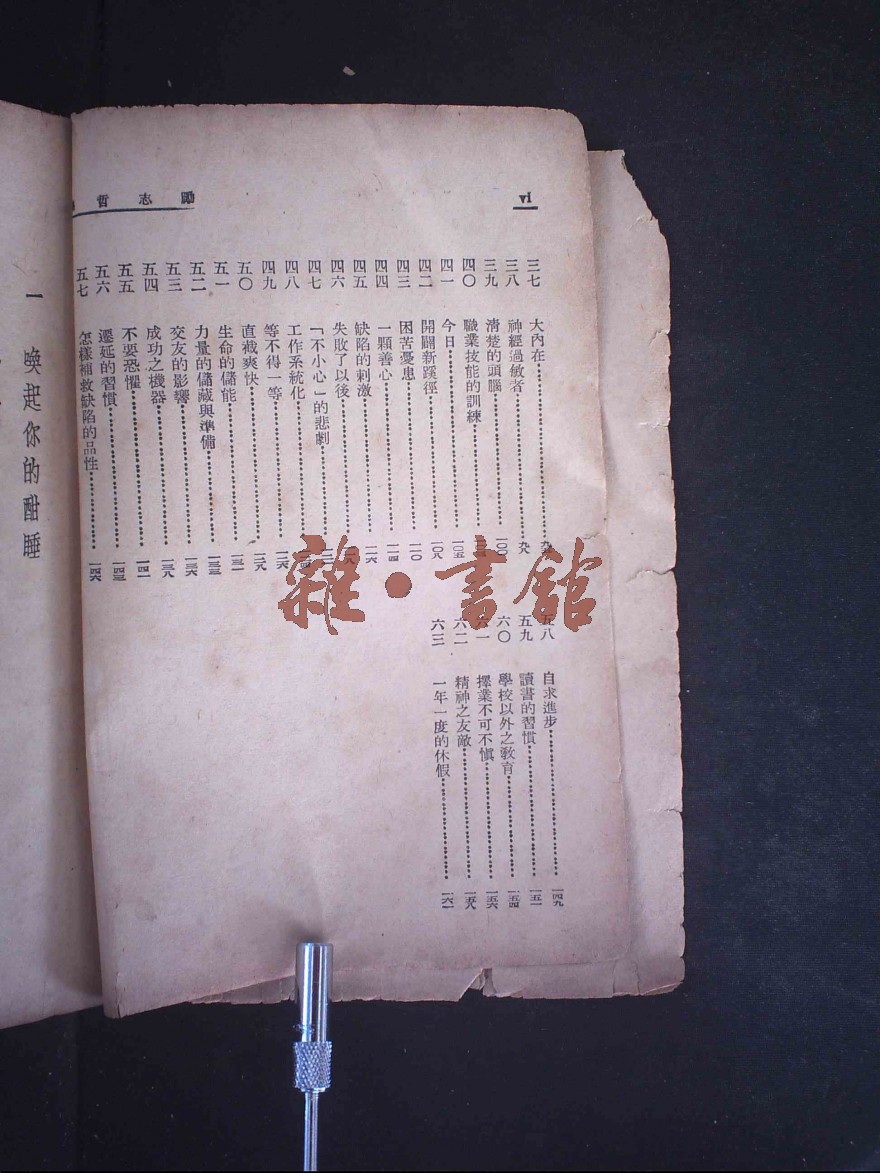 vi
勵志哲
三七 大內在
三八 神經過敏者 九八
三九 清楚的頭腦 一〇〇
四〇 職業技能的訓練
四一 今日 一〇五
四二 開闢新蹊徑 一〇八
四三 困苦憂患 一一〇
四四 一顆善心 一一四
四五 缺陷的刺激 一一六
四六 失敗了以後
四七 「不小心」的悲劇
四八 工作系統化
四九 等不得一等 一二六
五〇 直截爽快 一二八
五一 生命的儲能 一三一
五二 力量的儲藏與準備 一三三
五三 交友的影響 一三六
五四 成功之機器 一三八
五五 不要恐懼 一四一
五六 遷延的習慣 一四三
五七 怎樣補救缺陷的品性 一四六
五八 自求進步 一四九
五九 讀書的習慣 一五一
六〇 學校以外之教育 一五四
六一 擇業不可不愼 一五六
六二 精神之友敵 一五八
六三 一年一度的休假 一六一
雜·書館
一 喚起你的酣睡